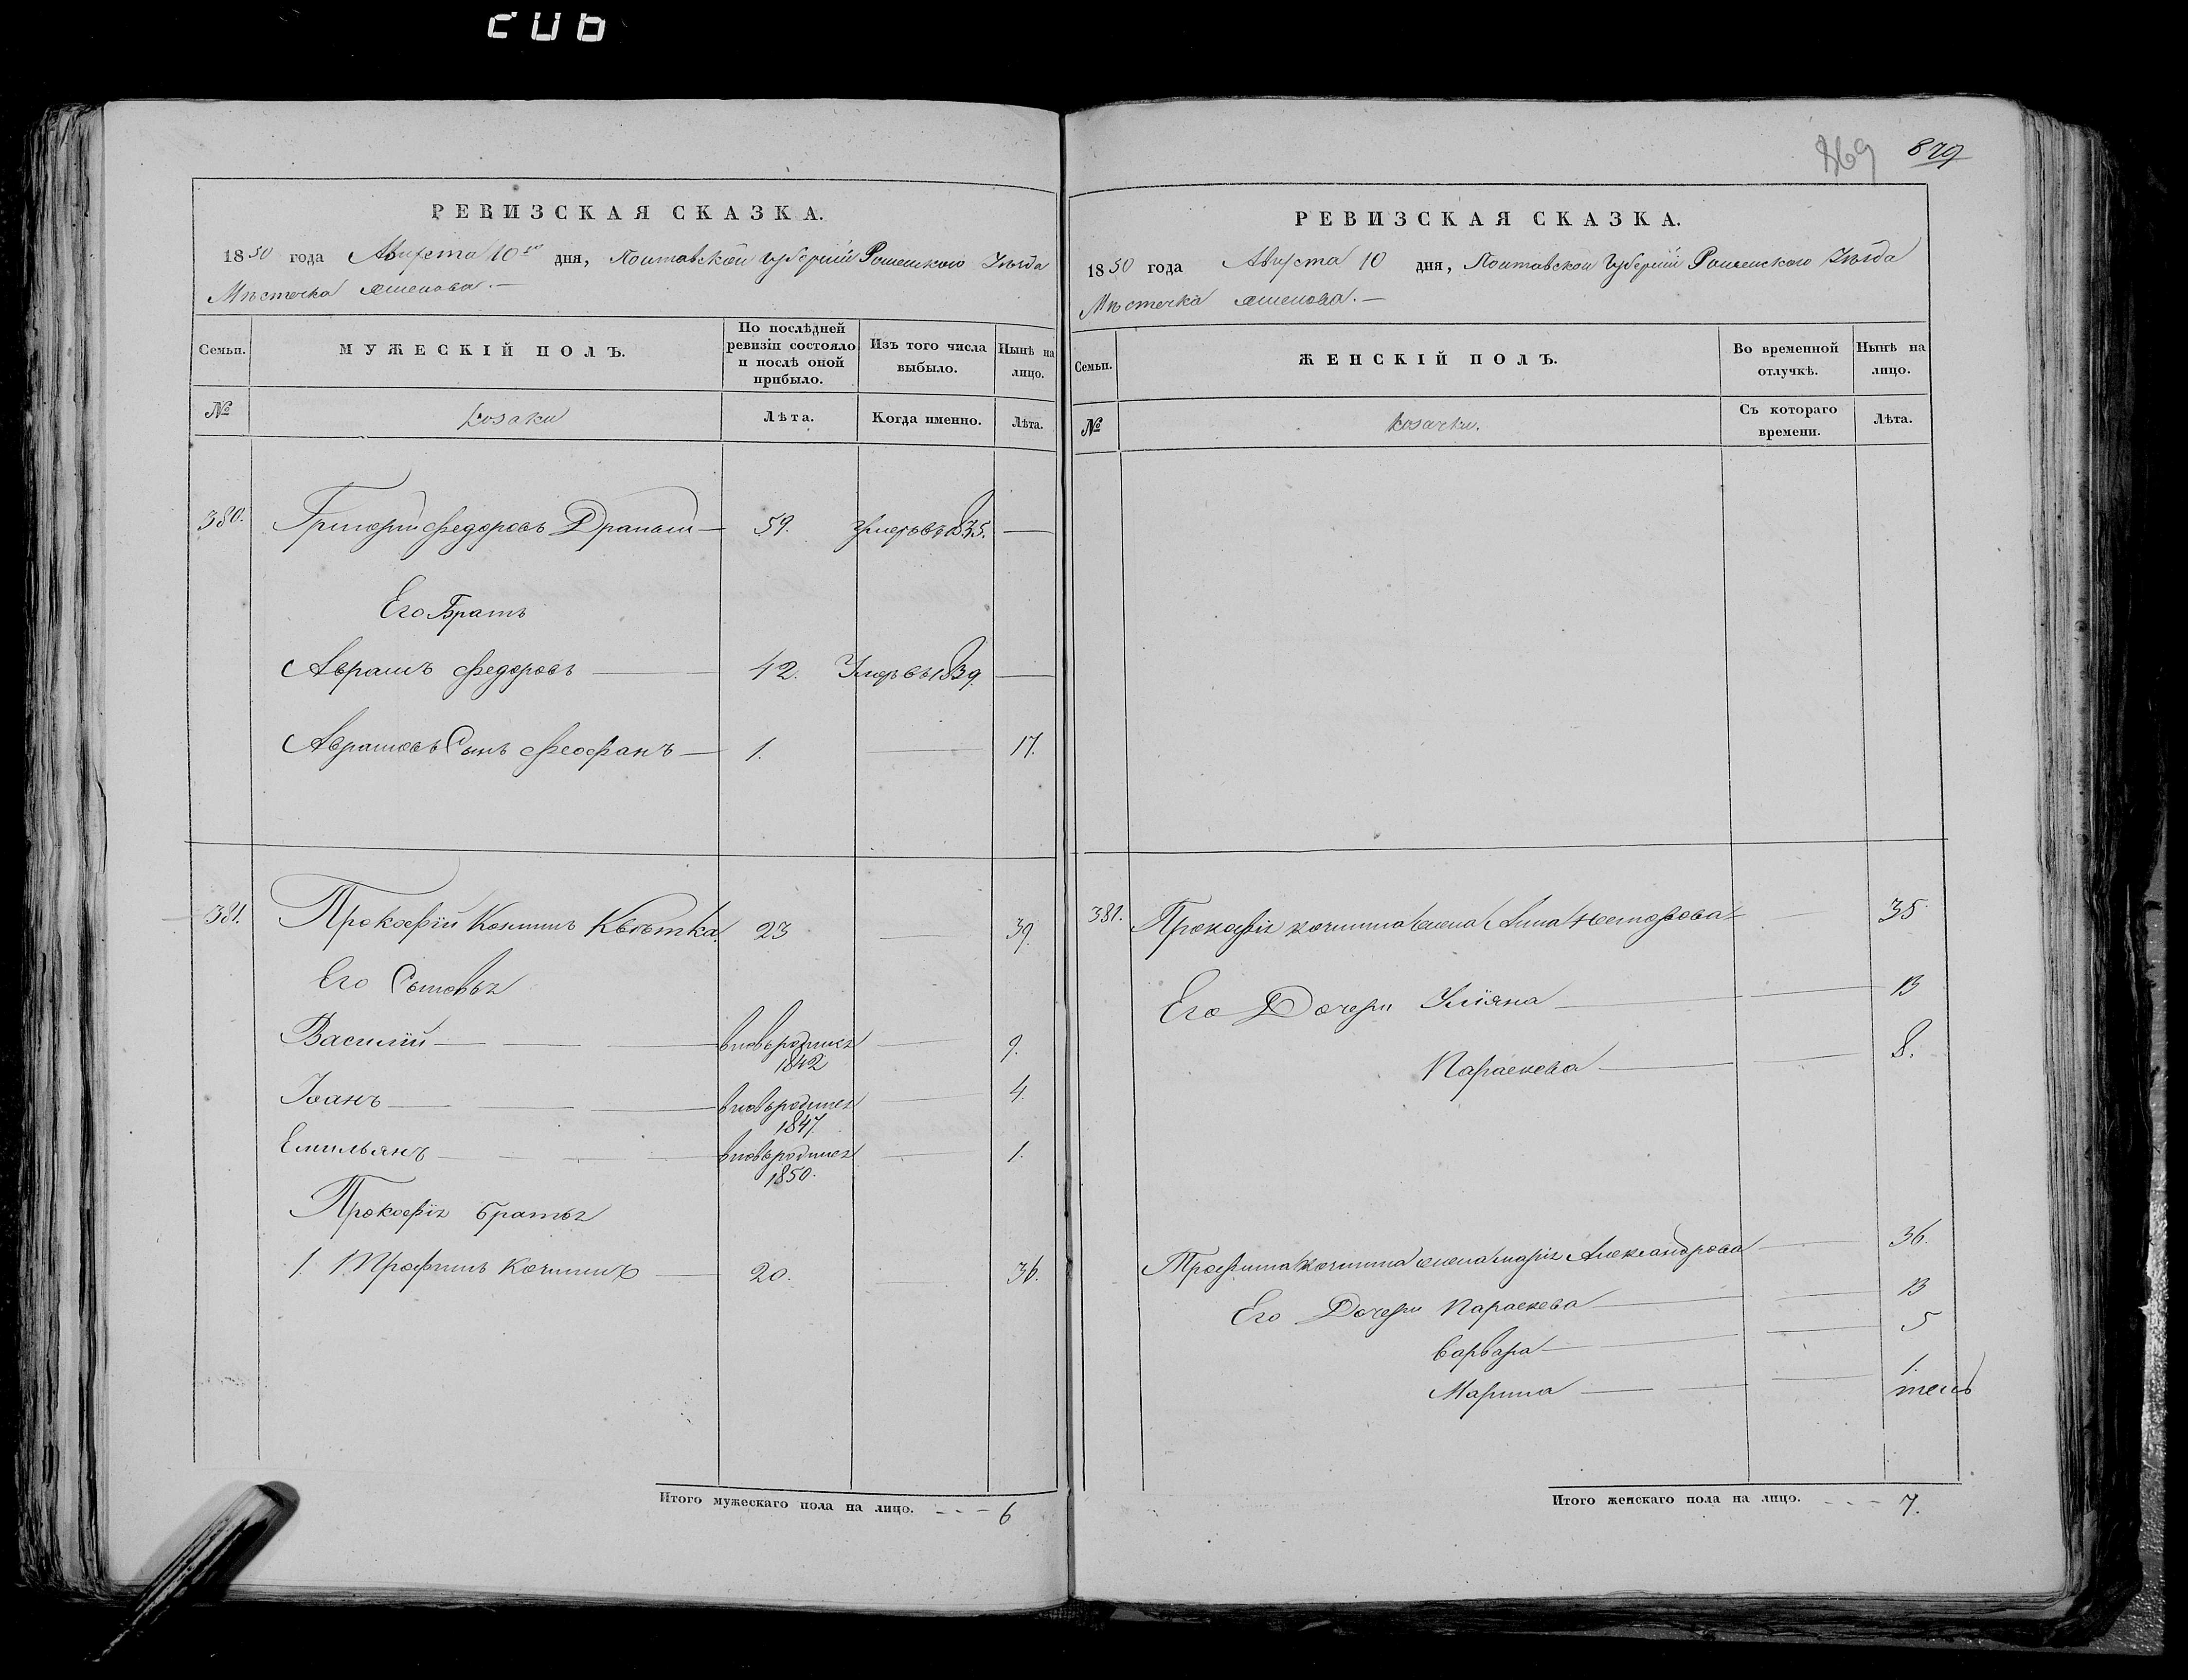 206
869 879
РЕВИЗСКАЯ СКАЗКА.
1850 года Августа 10го дня, Полтавской Губерніи Роменского Уѣзда
Мѣстечка
Семьи. МУЖЕСКІЙ ПОЛЪ. По послѣдней ревизіи состояло и послѣ оной прибыло. Изъ того числа выбыло. Нынѣ на лицо.
№ козаки Лѣта. Когда именно. Лѣта.
380. Григорій Федоровъ 59. Умеръ въ 1835. —
Его Братъ
Аврамъ Федоровъ — 42. Умеръ въ 1839. —
Аврамовъ Сынъ Феофанъ — 1. — 17.
381. Прокофій Квѣтка. 23 — 39.
Его Сыновья
Василій — вновь родился 1842 — 9.
Іванъ — вновь родился 1847. — 4.
Емильянъ — вновь родился 1850. — 1.
Прокофія братья
1. Трофимъ — 20. 36.
Итого мужескаго пола на лицо. - - - 6
РЕВИЗСКАЯ СКАЗКА.
1850 года Августа 10 дня, Полтавской Губерніи Роменского Уѣзда
Мѣстечка
Семьи. ЖЕНСКІЙ ПОЛЪ. Во временной отлучкѣ. Нынѣ на лицо.
№ козачки. Съ котораго времени. Лѣта.
381. Прокофія жена Анна Несторова — 35
Его Дочери Уліяна — 13
Параскева — 8.
Трофима жена Марія Александрова — 36.
Его Дочери Параскева — 13
Варвара — 5
Марина — 1.
Итого женскаго пола на лицо. - - - 7.